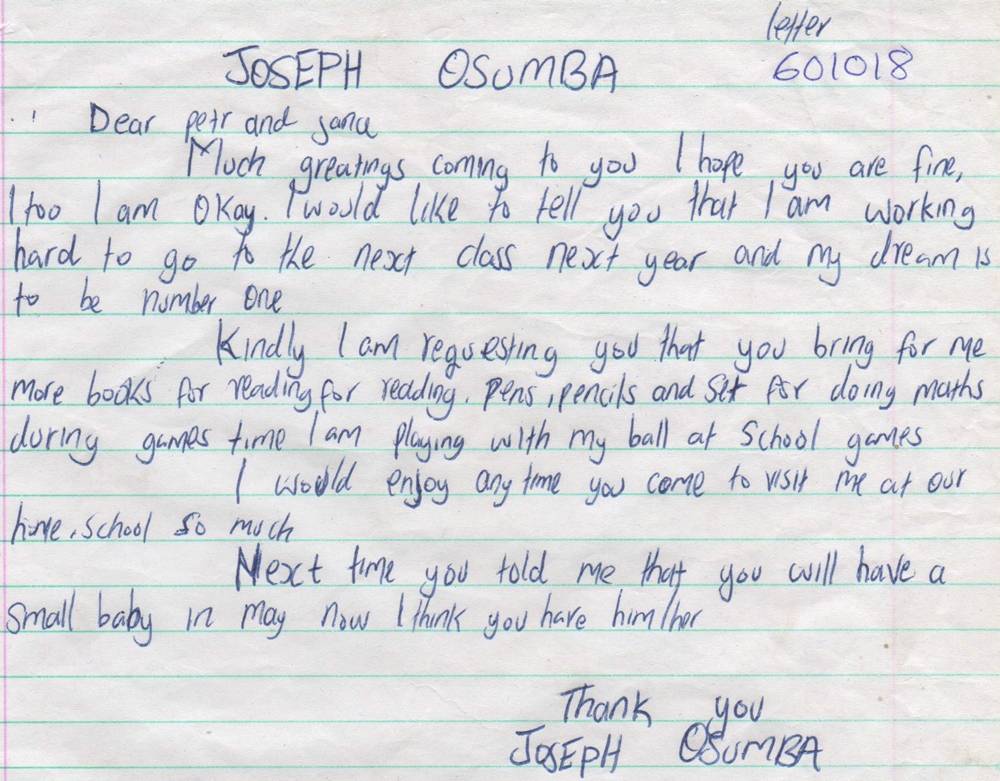 letter
JOSEPH OSUMBA 601018
Dear petr and jana
Much greatings coming to you I hope you are fine,
I too I am Okay. I would like to tell you that I am working
hard to go to the next class next year and my dream is
to be number one
Kindly I am requesting you that you bring for me
more books for reading for reading. pens, pencils and set for doing maths
during games time I am playing with my ball at School games
I would enjoy any time you come to visit me at our
home, school so much
Next time you told me that you will have a
small baby in may now I think you have him/her
Thank you
JOSEPH OSUMBA